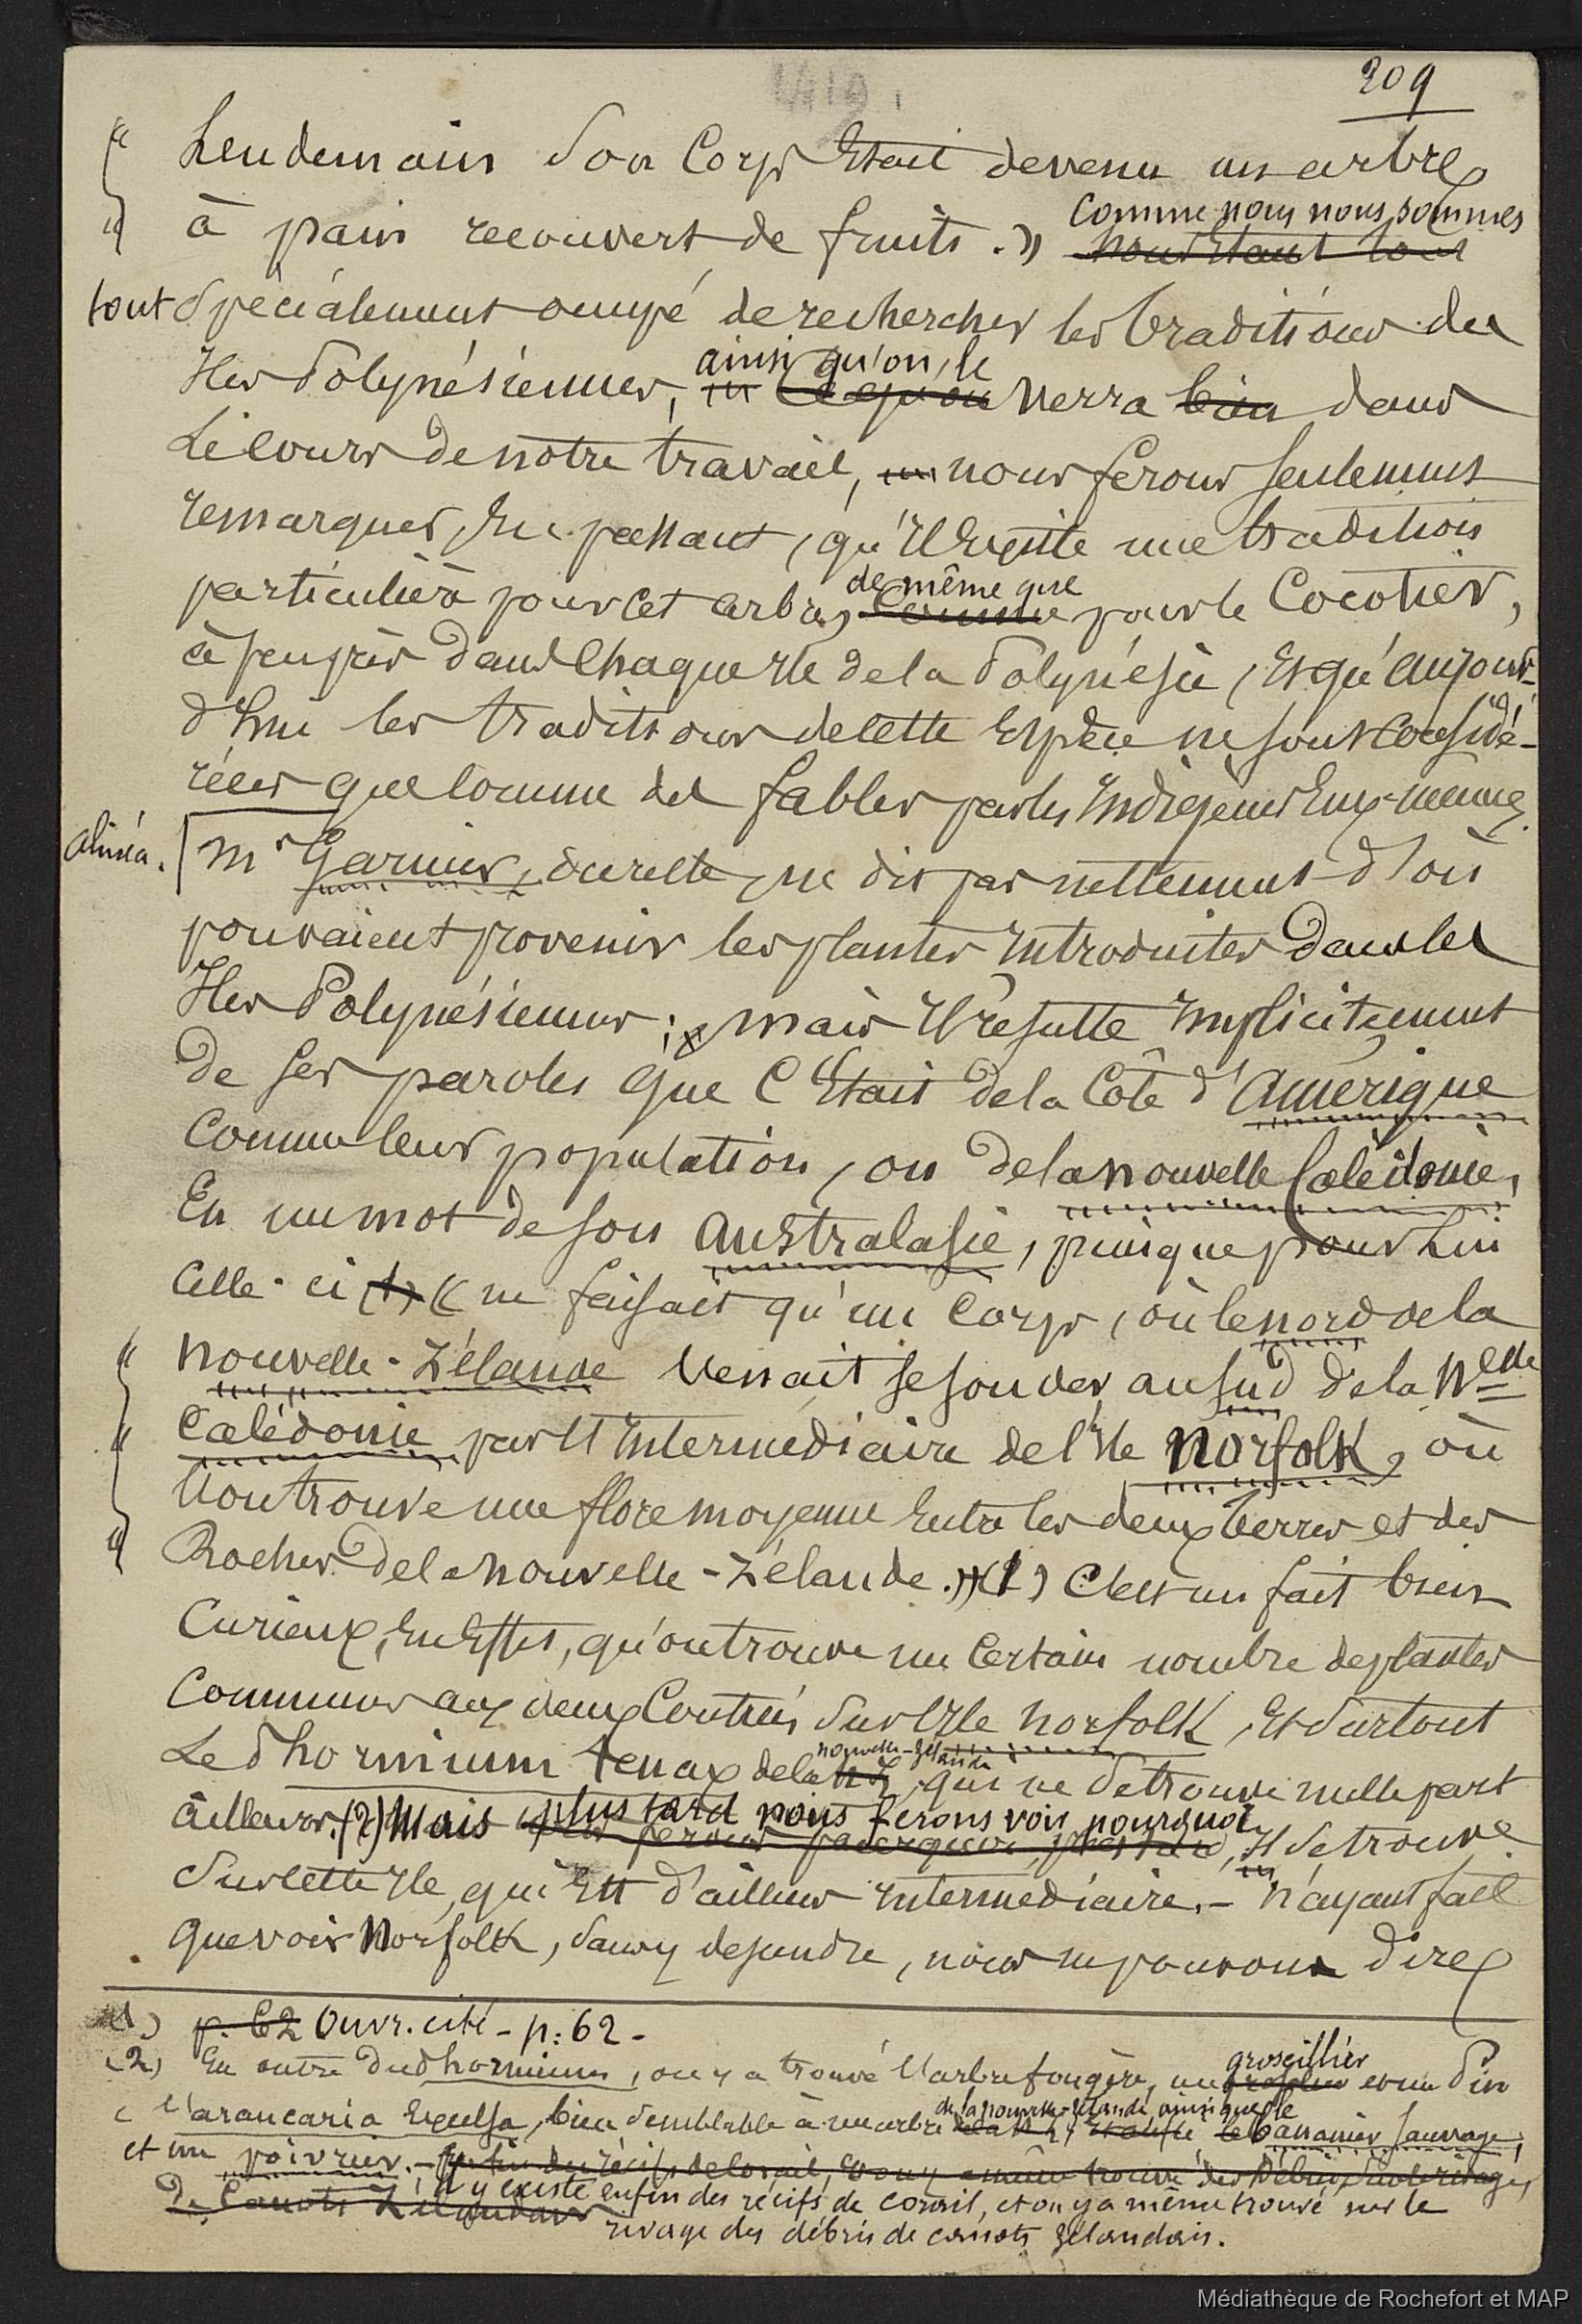 209
« Lendemain son Corps Etait devenu un arbre
« à pain recouvert de fruits. » Comme nous nous sommes
nous étant tout
tout Spécialement occupé de rechercher les traditions des
Iles Polynésiennes, ainsi qu'on le verra bien dans
Le cours de notre travail, nous ferons seulement
remarquer, En passant, qu'Il Existe une tradition
particulière pour Cet arbre, de même que Comme pour le Cocotier,
à peu près dans Chaque Ile de la Polynésie, Et qu'aujour-
d'hui les traditions de cette Espèce ne sont Considé-
rées que Comme des fables par les Indigènes Eux-mêmes.
alinéa. Mr Garnier, du reste, ne dit pas nettement d'où
pouvaient provenir les plantes Introduites dans les
Iles Polynésiennes; mais Il résulte Implicitement
de ses paroles que C'Etait de la Côte d'Amérique
Comme leur population, ou de la nouvelle Calédonie,
En un mot de son Australasie, puisque pour Lui
Celle-ci (1) « ne faisait qu'un Corps, où le nord de la
« nouvelle-Zélande venait se souder au sud de la Nelle
« Calédonie par l'Intermédiaire de l'Ile Norfolk, où
l'on trouve une flore moyenne Entre les deux terres et des
« Roches de la nouvelle-Zélande. » (1) C'est un fait bien
Curieux, En Effet, qu'on trouve un Certain nombre de plantes
Communes aux deux Contrées Sur l'Ile Norfolk, Et Surtout
Le Phormium tenax de la nouvelle-zélande N Z, qui ne Se trouve nulle part
ailleurs. (2) Mais plus tard nous ferons voir pourquoi Il Se trouve
Sur cette Ile, qui Est d'ailleurs Intermédiaire. - N'ayant fait
que voir Norfolk, Sans y descendre, nous ne pouvons dire
(1) p. 62 Ouvr. cité - p: 62 -
(2) En outre du Phormium, on y a trouvé l'arbre fougère, un groseillier et un Pin
l'araucaria Excelsa, bien Semblable à un arbre de la nouvelle-zélande ainsi que le bananier sauvage,
et un poivrier. -
il y existe enfin des récifs de corail, et on y a même trouvé sur le
De Canots Zélandais
rivage des débris de canots zélandais.
Médiathèque de Rochefort et MAP